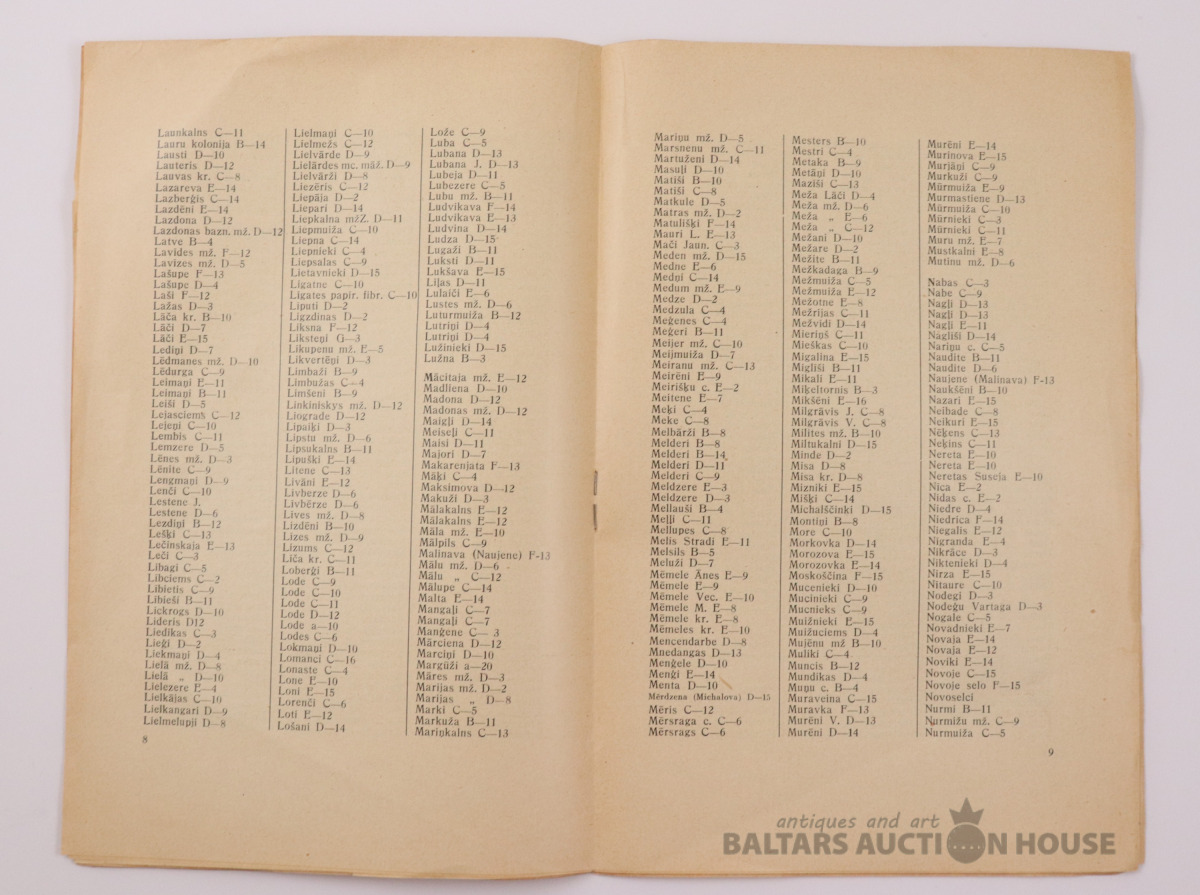 Launkalns C—11
Lauru kolonija B—14
Lausti D—10
Lauteris D—12
Lauvas kr. C—8
Lazareva E—14
Lazberģis C—14
Lazdēni E—14
Lazdona D—12
Lazdonas bazn. mž. D—12
Latve B—4
Lavides mž. F—12
Lavizes mž. D—5
Lašupe F—13
Lašupe D—4
Laši F—12
Lažas D—3
Lāča kr. B—10
Lāči D—7
Lāči E—15
Lediņi D—7
Lēdmanes mž. D—10
Lēdurga C—9
Leimaņi E—11
Leimaņi B—11
Leiši D—5
Lejasciems C—12
Lejeņi C—10
Lembis C—11
Lemzere D—5
Lēnes mž. D—3
Lēnite C—9
Lengmaņi D—9
Lenči C—10
Lestene J.
Lestene D—6
Lezdiņi B—12
Lešķi C—13
Lečinskaja E—13
Leči C—3
Libagi C—5
Libciems C—2
Libietis C—9
Libieši B—11
Lickrogs D—10
Lideris D12
Liedikas C—3
Lieģi D—2
Liekmaņi D—4
Lielā mž. D—8
Lielā „ D—10
Lielezere E—4
Lielkājas C—10
Lielkangari D—9
Lielmelupji D—8
8
Lielmaņi C—10
Lielmežs C—12
Lielvārde D—9
Lielārdes mc. māž. D—9
Lielvārži D—8
Liezēris C—12
Liepāja D—2
Liepari D—14
Liepkalna mžZ. D—11
Liepmuiža C—10
Liepna C—14
Liepnieki C—4
Liepsalas C—9
Lietavnieki D—15
Ligatne C—10
Ligates papir. fibr. C—10
Liputi D—2
Ligzdinas D—2
Liksna F—12
Liksteņi G—3
Likupenu mž. E—5
Likvertēņi D—3
Limbaži B—9
Limbužas C—4
Limšeni B—9
Linkiniskys mž. D—12
Liograde D—12
Lipaiķi D—3
Lipstu mž. D—6
Lipsukalns B—11
Lipuški E—14
Litene C—13
Livāni E—12
Livberze D—6
Livbērze D—6
Lives mž. D—8
Lizdēni B—10
Lizes mž. D—9
Lizums C—12
Liča kr. C—11
Loberģi B—11
Lode C—9
Lode C—10
Lode C—11
Lode D—12
Lode a—10
Lodes C—6
Lokmaņi D—10
Lomanci C—16
Lonaste C—4
Lone E—10
Loni E—15
Lorenči C—6
Loti E—12
Lošani D—14
Lože C—9
Luba C—5
Lubana D—13
Lubana J. D—13
Lubeja D—11
Lubezere C—5
Lubu mž. B—11
Ludvikava F—14
Ludvikava E—13
Ludvina D—14
Ludza D—15
Lugaži B—11
Luksti D—11
Lukšava E—15
Liļas D—11
Lulaiči E—6
Lustes mž. D—6
Luturmuiža B—12
Lutriņi D—4
Lutriņi D—4
Lužinieki D—15
Lužna B—3
Mācitaja mž. E—12
Madliena D—10
Madona D—12
Madonas mž. D—12
Maigļi D—14
Meiseļi C—11
Maisi D—11
Majori D—7
Makarenjata F—13
Māķi C—4
Maksimova D—12
Makuži D—3
Mālakalns E—12
Mālakalns E—12
Māla mž. E—10
Mālpils C—9
Malinava (Naujene) F-13
Mālu mž. D—6
Mālu „ C—12
Mālupe C—14
Malta E—14
Mangaļi C—7
Mangaļi C—7
Manģene C— 3
Mārciena D—12
Marciņi D—10
Margūži a—20
Māres mž. D—3
Marijas mž. D—2
Marijas „ D—8
Marki C—5
Markuža B—11
Mariņkalns C—13
Mariņu mž. D—5
Marsnenu mž. C—11
Martuženi D—14
Masuļi D—10
Matiši B—10
Matiši C—8
Matkule D—5
Matras mž. D—2
Matulišķi F—14
Mauri L. E—13
Mači Jaun. C—3
Meden mž. D—15
Medne E—6
Medņi C—14
Medum mž. E—9
Medze D—2
Medzula C—4
Meģenes C—4
Meģeri B—11
Meijer mž. C—10
Meijmuiža D—7
Meiranu mž. C—13
Meirēni E—9
Meirišķu c. E—2
Meitene E—7
Meķi C—4
Meke C—8
Melbārži B—8
Melderi B—8
Melderi B—14
Melderi D—11
Melderi C—9
Meldzere E—3
Meldzere D—3
Mellauši B—4
Meļļi C—11
Mellupes C—8
Melis Stradi E—11
Melsils B—5
Meluži D—7
Mēmele Ānes E—9
Mēmele E—9
Mēmele Vec. E—10
Mēmele M. E—8
Mēmele kr. E—8
Mēmeles kr. E—10
Mencendarbe D—8
Mnedangas D—13
Menģele D—10
Menģi E—14
Menta D—10
Mērdzena (Michalova) D—15
Mēris C—12
Mērsraga c. C—6
Mērsrags C—6
Mesters B—10
Mestri C—4
Metaka B—9
Metāņi D—10
Maziši C—13
Meža Lāči D—4
Meža mž. D—6
Meža „ E—6
Meža „ C—12
Mežani D—10
Mežare D—2
Mežite B—11
Mežkadaga B—9
Mežmuiža C—5
Mežmuiža E—12
Mežotne E—8
Mežrijas C—11
Mežvidi D—14
Mieriņš C—11
Mieškas C—10
Migalina E—15
Migliši B—11
Mikali E—11
Miķeltornis B—3
Mikšēni E—16
Milgrāvis J. C—8
Milgrāvis V. C—8
Milites mž. B—10
Miltukalni D—15
Minde D—2
Misa D—8
Misa kr. D—8
Mizniki E—15
Mišķi C—14
Michalščinki D—15
Montiņi B—8
More C—10
Morkovka D—14
Morozova E—15
Morozovka E—14
Moskoščina F—15
Mucenieki D—10
Mucinieki C—9
Mucnieks C—9
Muižnieki E—15
Muižuciems D—4
Mujēnu mž B—10
Muliki C—4
Muncis B—12
Mundikas D—4
Muņu c. B—4
Muraveina C—15
Muravka F—13
Murēni V. D—13
Murēni D—14
Murēni E—14
Murinova E—15
Murjāņi C—9
Murkuži C—9
Mūrmuiža E—9
Mūrmastiene D—13
Mūrmuiža C—10
Mūrnieki C—3
Mūrnieki C—11
Muru mž. E—7
Mustkalni E—8
Mutinu mž. D—6
Nabas C—3
Nabe C—9
Nagļi D—13
Nagļi D—13
Nagļi E—11
Nagliši D—14
Nariņu c. C—5
Naudite B—11
Naudite D—6
Naujene (Malinava) F-13
Naukšēni B—10
Nazari E—15
Neibade C—8
Neikuri E—15
Nēķens C—13
Neķins C—11
Nereta E—10
Nereta E—10
Neretas Suseja E—10
Nica E—2
Nidas c. E—2
Niedre D—4
Niedrica F—14
Niegalis E—12
Nigranda E—4
Nikrāce D—3
Niktenieki D—4
Nirza E—15
Nitaure C—10
Nodegi D—3
Nodeģu Vartaga D—3
Nogale C—5
Novadnieki E—7
Novaja E—14
Novaja E—12
Noviki E—14
Novoje C—15
Novoje selo F—15
Novoselci
Nurmi B—11
Nurmižu mž. C—9
Nurmuiža C—5
9
antiques and art
BALTARS AUCTION HOUSE